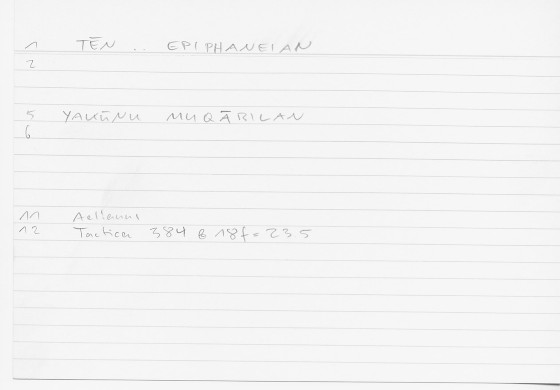 1 TĒN .. EPIPHANEIAN
2
5 YAKŪNU MUQĀRILAN
6
11 Aelianus
12 Tactica 384 B 18f = 235